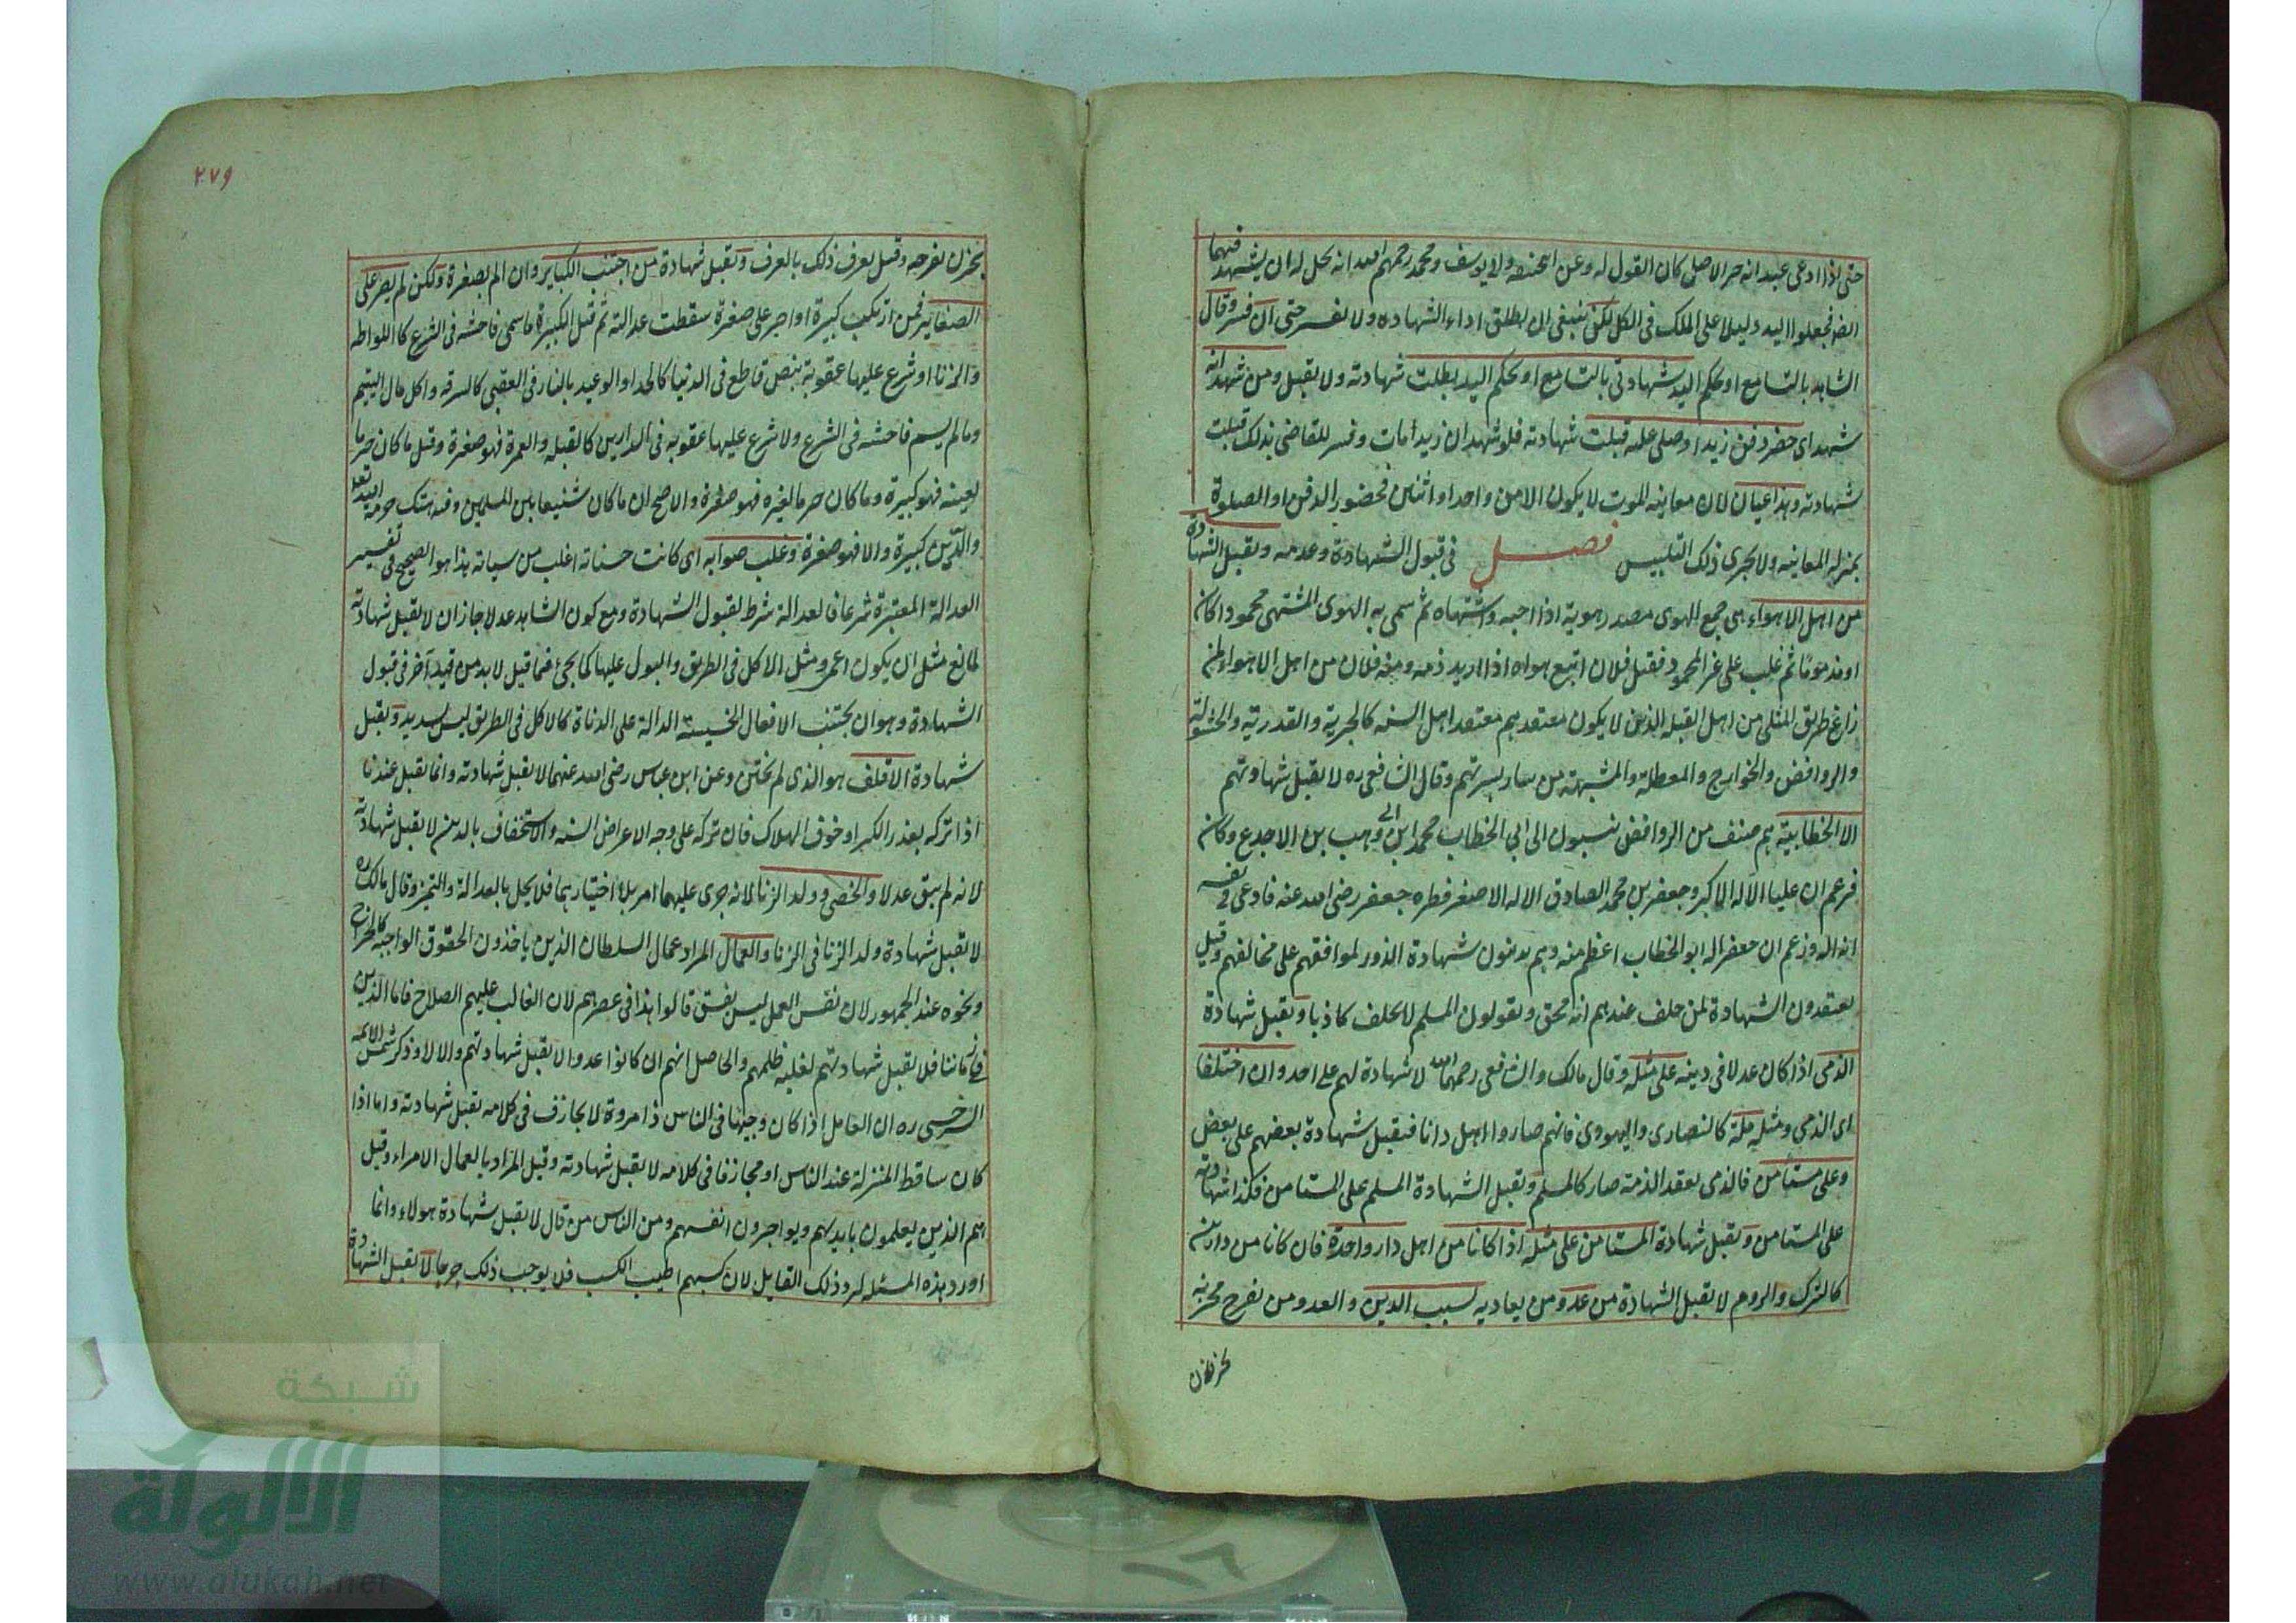 حتى اذا ادعى عبد انه حر الاصل كان القول له وعن ابيحنيفه ولابيوسف ومحمد رحمهم الله انه يحل له ان يشهد فيهما
ايضا فجعلوا اليد دليلا على الملك في الكل لكن ينبغي ان يطلق اداء الشهاده ولا يفسر حتى ان فسر وقال
الشاهد بالتسامع او بحكم اليد شهادتي بالتسامع او بحكم اليد بطلت شهادته ولا يقبل ومن شهد انه
شهد اى حضر دفن زيد او صلى عليه قبلت شهادته فلو شهد ان زيدا مات وفسر للقاضى بذلك قبلت
شهادته وهذا عيان لان معاينه الموت لا يكون الا من واحد او اثنين فحضور الدفن او الصلوة
بمنزله المعاينه ولا يجرى ذلك التلبيس فصل في قبول الشهادة وعدمه ويقبل الشهادة
من اهل الاهواء هى جمع الهوى مصدر هويته اذا احبه واشتهاه ثم سمى به الهوى المشتهى محمودا كان
او مذموما ثم غلب على غير المحمود فقيل فلان اتبع هواه اذا اريد ذمه ومنه فلان من اهل الاهواء لمن
زاغ طريق المثلى من اهل القبله الذين لا يكون معتقدهم معتقد اهل السنه كالجبرية والقدرية والحشوية
والروافض والخوارج والمعطلة والمشبهة من سار بسيرتهم وقال الشافعى ره لا يقبل شهادتهم
الا الخطابية هم صنف من الروافض ينسبون الى ابي الخطاب محمد ابن ابى وهب بن الاجدع وكان
فزعم ان عليا الاله الاكبر وجعفر بن محمد الصادق الاله الاصغر فطره جعفر رضى الله عنه فادعى في نفسه
انه اله وزعم ان جعفر اله ابو الخطاب اعظم منه وهم يدينون شهادة الزور لموافقهم على مخالفهم وقيل
يعتقدون الشهادة لمن حلف عندهم انه محق ويقولون المسلم لا يحلف كاذبا ويقبل شهادة
الذمى اذا كان عدلا في دينه على مثله وقال مالك والشافعى رحمهما الله لا شهادة لهم على احد وان اختلفا
اى الذمى ومثله ملة كالنصارى واليهودى فانهم صاروا اهل دارنا فتقبل شهادة بعضهم على بعض
وعلى مستامن فالذمى بعقد الذمة صار كالمسلم ويقبل الشهادة المسلم على المستامن فكذا شهادته
على المستامن ويقبل شهادة المستامن على مثله اذا كانا من اهل دار واحدة فان كانا من دارين
كالترك والروم لا تقبل الشهادة من عدو من يعاديه بسبب الدين والعدو من يفرح بحزنه
٢٧٩
بحزن بفرحه وقيل يعرف ذلك بالعرف وتقبل شهادة من اجتنب الكباير وان الم بصغيرة ولكن لم يصر على
الصغاير فمن ارتكب كبيرة او اصر على صغيرة سقطت عدالته ثم قيل الكبيرة ما سمى فاحشه في الشرع كاللواطه
والزنا او شرع عليها عقوبة بنص قاطع في الدنيا كالحد او الوعيد بالنار في العقبى كالسرقه واكل مال اليتيم
وما لم يسم فاحشه في الشرع ولا شرع عليها عقوبه في الدارين كالقبله والغمزة فهو صغيرة وقيل ما كان حرما
لعينه فهو كبيرة وما كان حرما لغيره فهو صغيرة والاصح ان ما كان شنيعا بين المسلمين وفيه هتك حرمة الله تعالى
والدين كبيرة والا فهو صغيرة وغلب صوابه اى كانت حسناته اغلب من سياته هذا هو الصحيح في تفسير
العدالة المعتبرة شرعا فالعدالة شرط لقبول الشهادة ومع كون الشاهد عدلا جاز ان لا يقبل شهادته
لمانع مثل ان يكون اعمى ومثل الاكل في الطريق والبول عليها كما يجئ فما قيل لا بد من قيد آخر في قبول
الشهادة وهو ان يجتنب الافعال الخسيسة الدالة على الدناة كالاكل في الطريق ليس بسديد وتقبل
شهادة الاقلف هو الذى لم يختن وعن ابن عباس رضى الله عنهما لا يقبل شهادته وانما يقبل عندنا
اذا تركه بعذر الكبر او خوف الهلاك فان تركه على وجه الاعراض السنه والاستخفاف بالدين لا يقبل شهادته
لانه لم يبق عدلا والخصى وولد الزنا لانه جرى عليهما امر بلا اختيارهما فلا يخل بالعدالة والتميز وقال مالك ره
لا تقبل شهادة ولد الزنا في الزنا والعمال المراد عمال السلطان الذين ياخذون الحقوق الواجبه كالخراج
ونحوه عند الجمهور لان نفس العمل ليس بفسق قالوا هذا في عصرهم لان الغالب عليهم الصلاح فاما الذين
في زماننا فلا يقبل شهادتهم لغلبه ظلمهم والحاصل انهم ان كانوا عدولا يقبل شهادتهم والا لا وذكر شمس الايمه
السرخسى ره ان العامل اذا كان وجيها في الناس ذا مروة لا يجازف في كلامه يقبل شهادته واما اذا
كان ساقط المنزلة عند الناس او مجازفا في كلامه لا يقبل شهادته وقيل المراد بالعمال الامراء وقيل
هم الذين يعلمون بايديهم ويواجرون انفسهم ومن الناس من قال لا يقبل شهادة هولاء وانما
اورد هذه المسئله لرد ذلك القايل لان كسبهم اطيب الكسب فلا يوجب ذلك جرحا لا تقبل الشهادة
شبكة
الألوكة
www.alukah.net